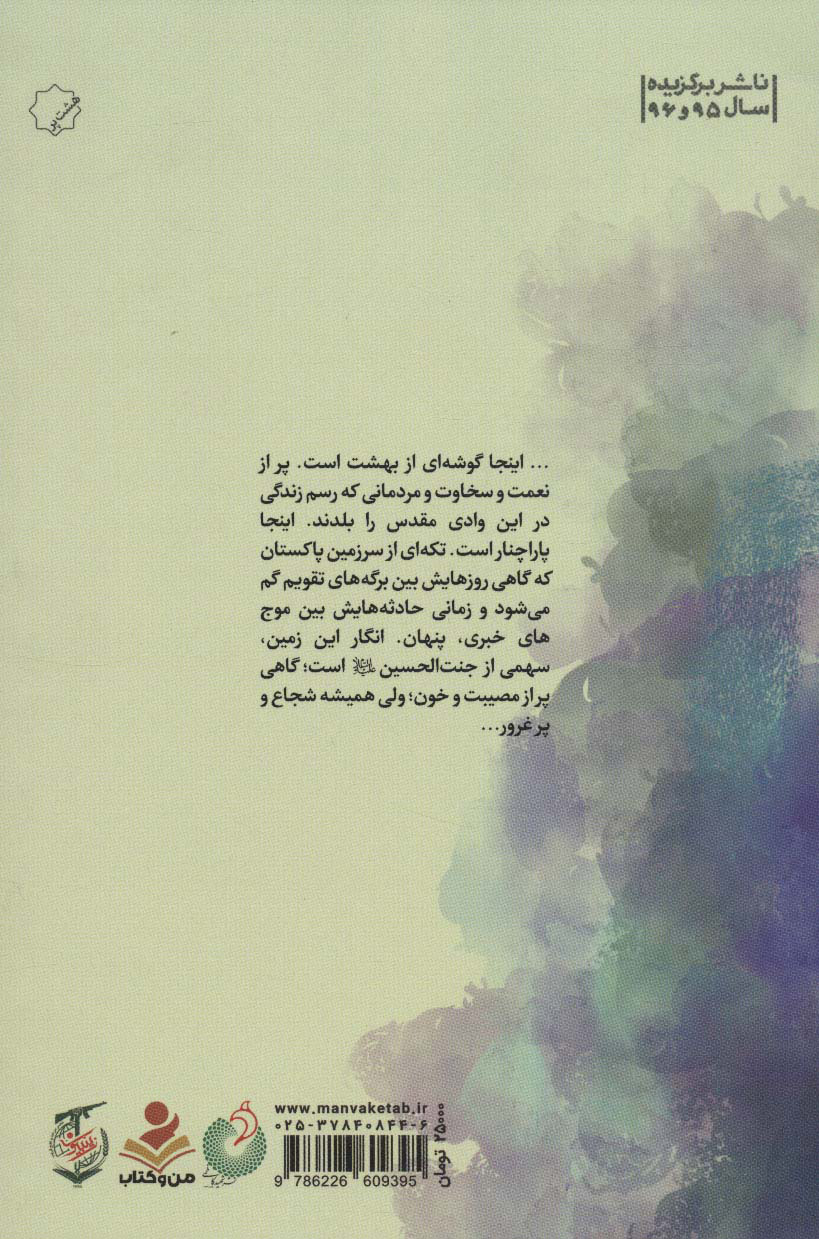 ناشر برگزیده
سال ۹۵ و ۹۶
هشت پر
... اینجا گوشه‌ای از بهشت است. پر از
نعمت و سخاوت و مردمانی که رسم زندگی
در این وادی مقدس را بلدند. اینجا
پاراچنار است. تکه‌ای از سرزمین پاکستان
که گاهی روزهایش بین برگه‌های تقویم گم
می‌شود و زمانی حادثه‌هایش بین موج
های خبری، پنهان. انگار این زمین،
سهمی از جنت‌الحسین علیه‌السلام است؛ گاهی
پر از مصیبت و خون؛ ولی همیشه شجاع و
پر غرور...
www.manvaketab.ir
۰۲۵-۳۷۸۴۰۸۴۴-۶
9 786226 609395
۲۵۰۰۰ تومان
من و کتاب